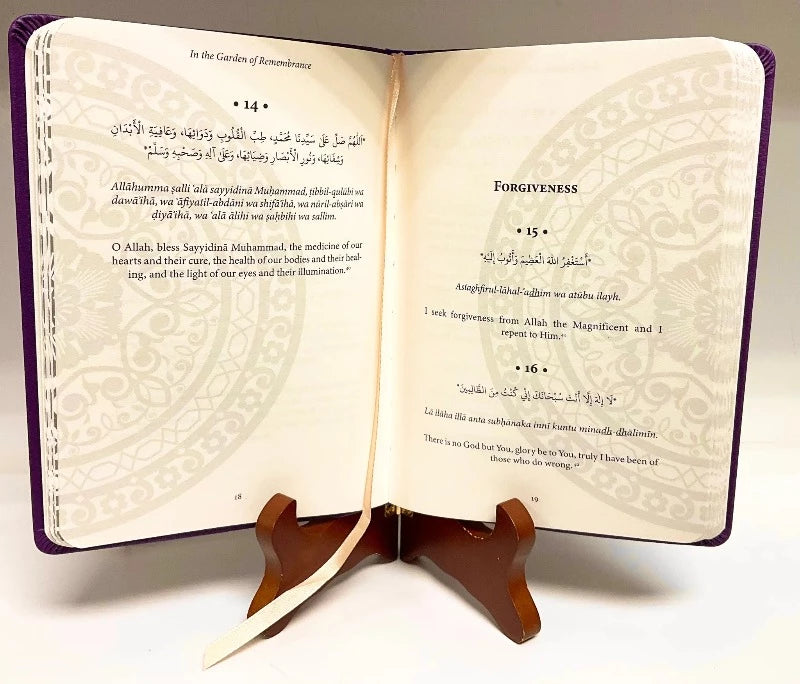 In the Garden of Remembrance
• 14 •
"اَللّٰهُمَّ صَلِّ عَلَىٰ سَيِّدِنَا مُحَمَّدٍ، طِبِّ الْقُلُوبِ وَدَوَائِهَا، وَعَافِيَةِ الْأَبْدَانِ
وَشِفَائِهَا، وَنُورِ الْأَبْصَارِ وَضِيَائِهَا، وَعَلَىٰ آلِهِ وَصَحْبِهِ وَسَلِّمْ"
Allāhumma ṣalli ʿalā sayyidinā Muḥammad, ṭibbil-qulūbi wa
dawā'ihā, wa ʿāfiyatil-abdāni wa shifā'ihā, wa nūril-abṣāri wa
ḍiyā'ihā, wa ʿalā ālihi wa ṣaḥbihi wa sallim.
O Allah, bless Sayyidinā Muhammad, the medicine of our
hearts and their cure, the health of our bodies and their heal-
ing, and the light of our eyes and their illumination.
18
FORGIVENESS
• 15 •
"أَسْتَغْفِرُ اللهَ الْعَظِيْمَ وَأَتُوْبُ إِلَيْهِ"
Astaghfirul-lāhal-ʿadhim wa atūbu ilayh.
I seek forgiveness from Allah the Magnificent and I
repent to Him.
• 16 •
"لَا إِلٰهَ إِلَّا أَنْتَ سُبْحَانَكَ إِنِّي كُنْتُ مِنَ الظَّالِمِيْنَ"
Lā ilāha illā anta subḥānaka innī kuntu minadh-dhālimīn.
There is no God but You, glory be to You, truly I have been of
those who do wrong.
19